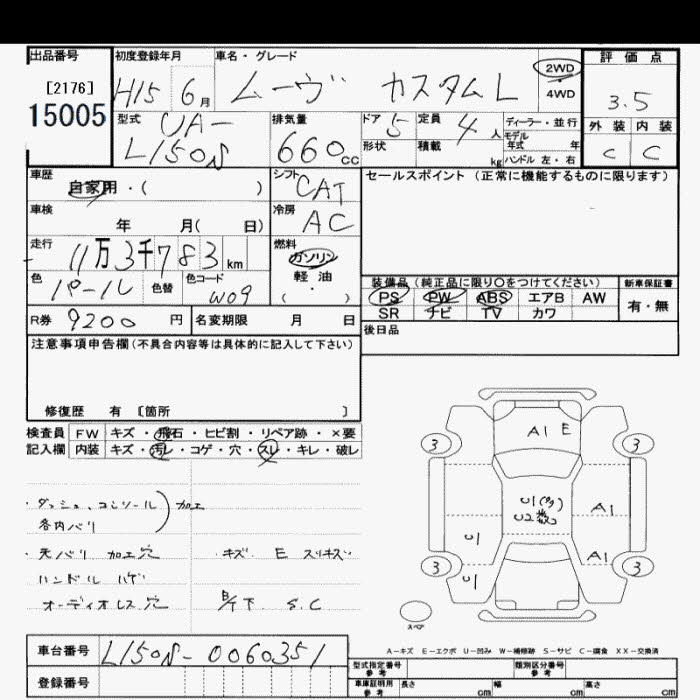 出品番号 初度登録年月 車名・グレード 評価点
[2176] H15 6月 ムーヴ カスタムL 2WD ・ 4WD 3.5
15005 型式 UA-L150S 排気量 660cc ドア 5 定員 4人 ディーラー・並行 外装 内装
形状 積載 kg モデル年式 年 ハンドル 左・右 C C
車歴 自家用・( ) シフト CAT セールスポイント (正常に機能するものに限ります)
車検 年 月( 日) 冷房 AC
走行 11万3千783km 燃料 ガソリン 軽油 ( ・ )
色 パール 色替 色コード W09 装備品 (純正品に限り○をつけてください) 新車保証書
PS PW ABS エアB AW 有・無
SR ナビ TV カワ
R券 9200円 名変期限 月 日 後日品
注意事項申告欄(不具合内容等は具体的に記入して下さい)
修復歴 有 [箇所 ]
検査員 FW キズ・飛石・ヒビ割・リペア跡・×要
記入欄 内装 キズ・汚レ・コゲ・穴・スレ・キレ・破レ
・ダッシュ、コンソール 加工
各内バリ
・天バリ 加工穴 ・キズ E スリキズ
ハンドル ハゲ
オーディオレス穴 S.C
A1 E
3 3
U1(多)
U2数
A1
U1
A1
3 3
U1
スペア
A-キズ E-エクボ U-凹み W-補修跡 S-サビ C-腐食 XX-交換済
車台番号 L150S-0060351
登録番号
型式指定番号 参考 類別区分番号 参考
車庫証明用 参考 長さ cm 幅 cm 高さ cm